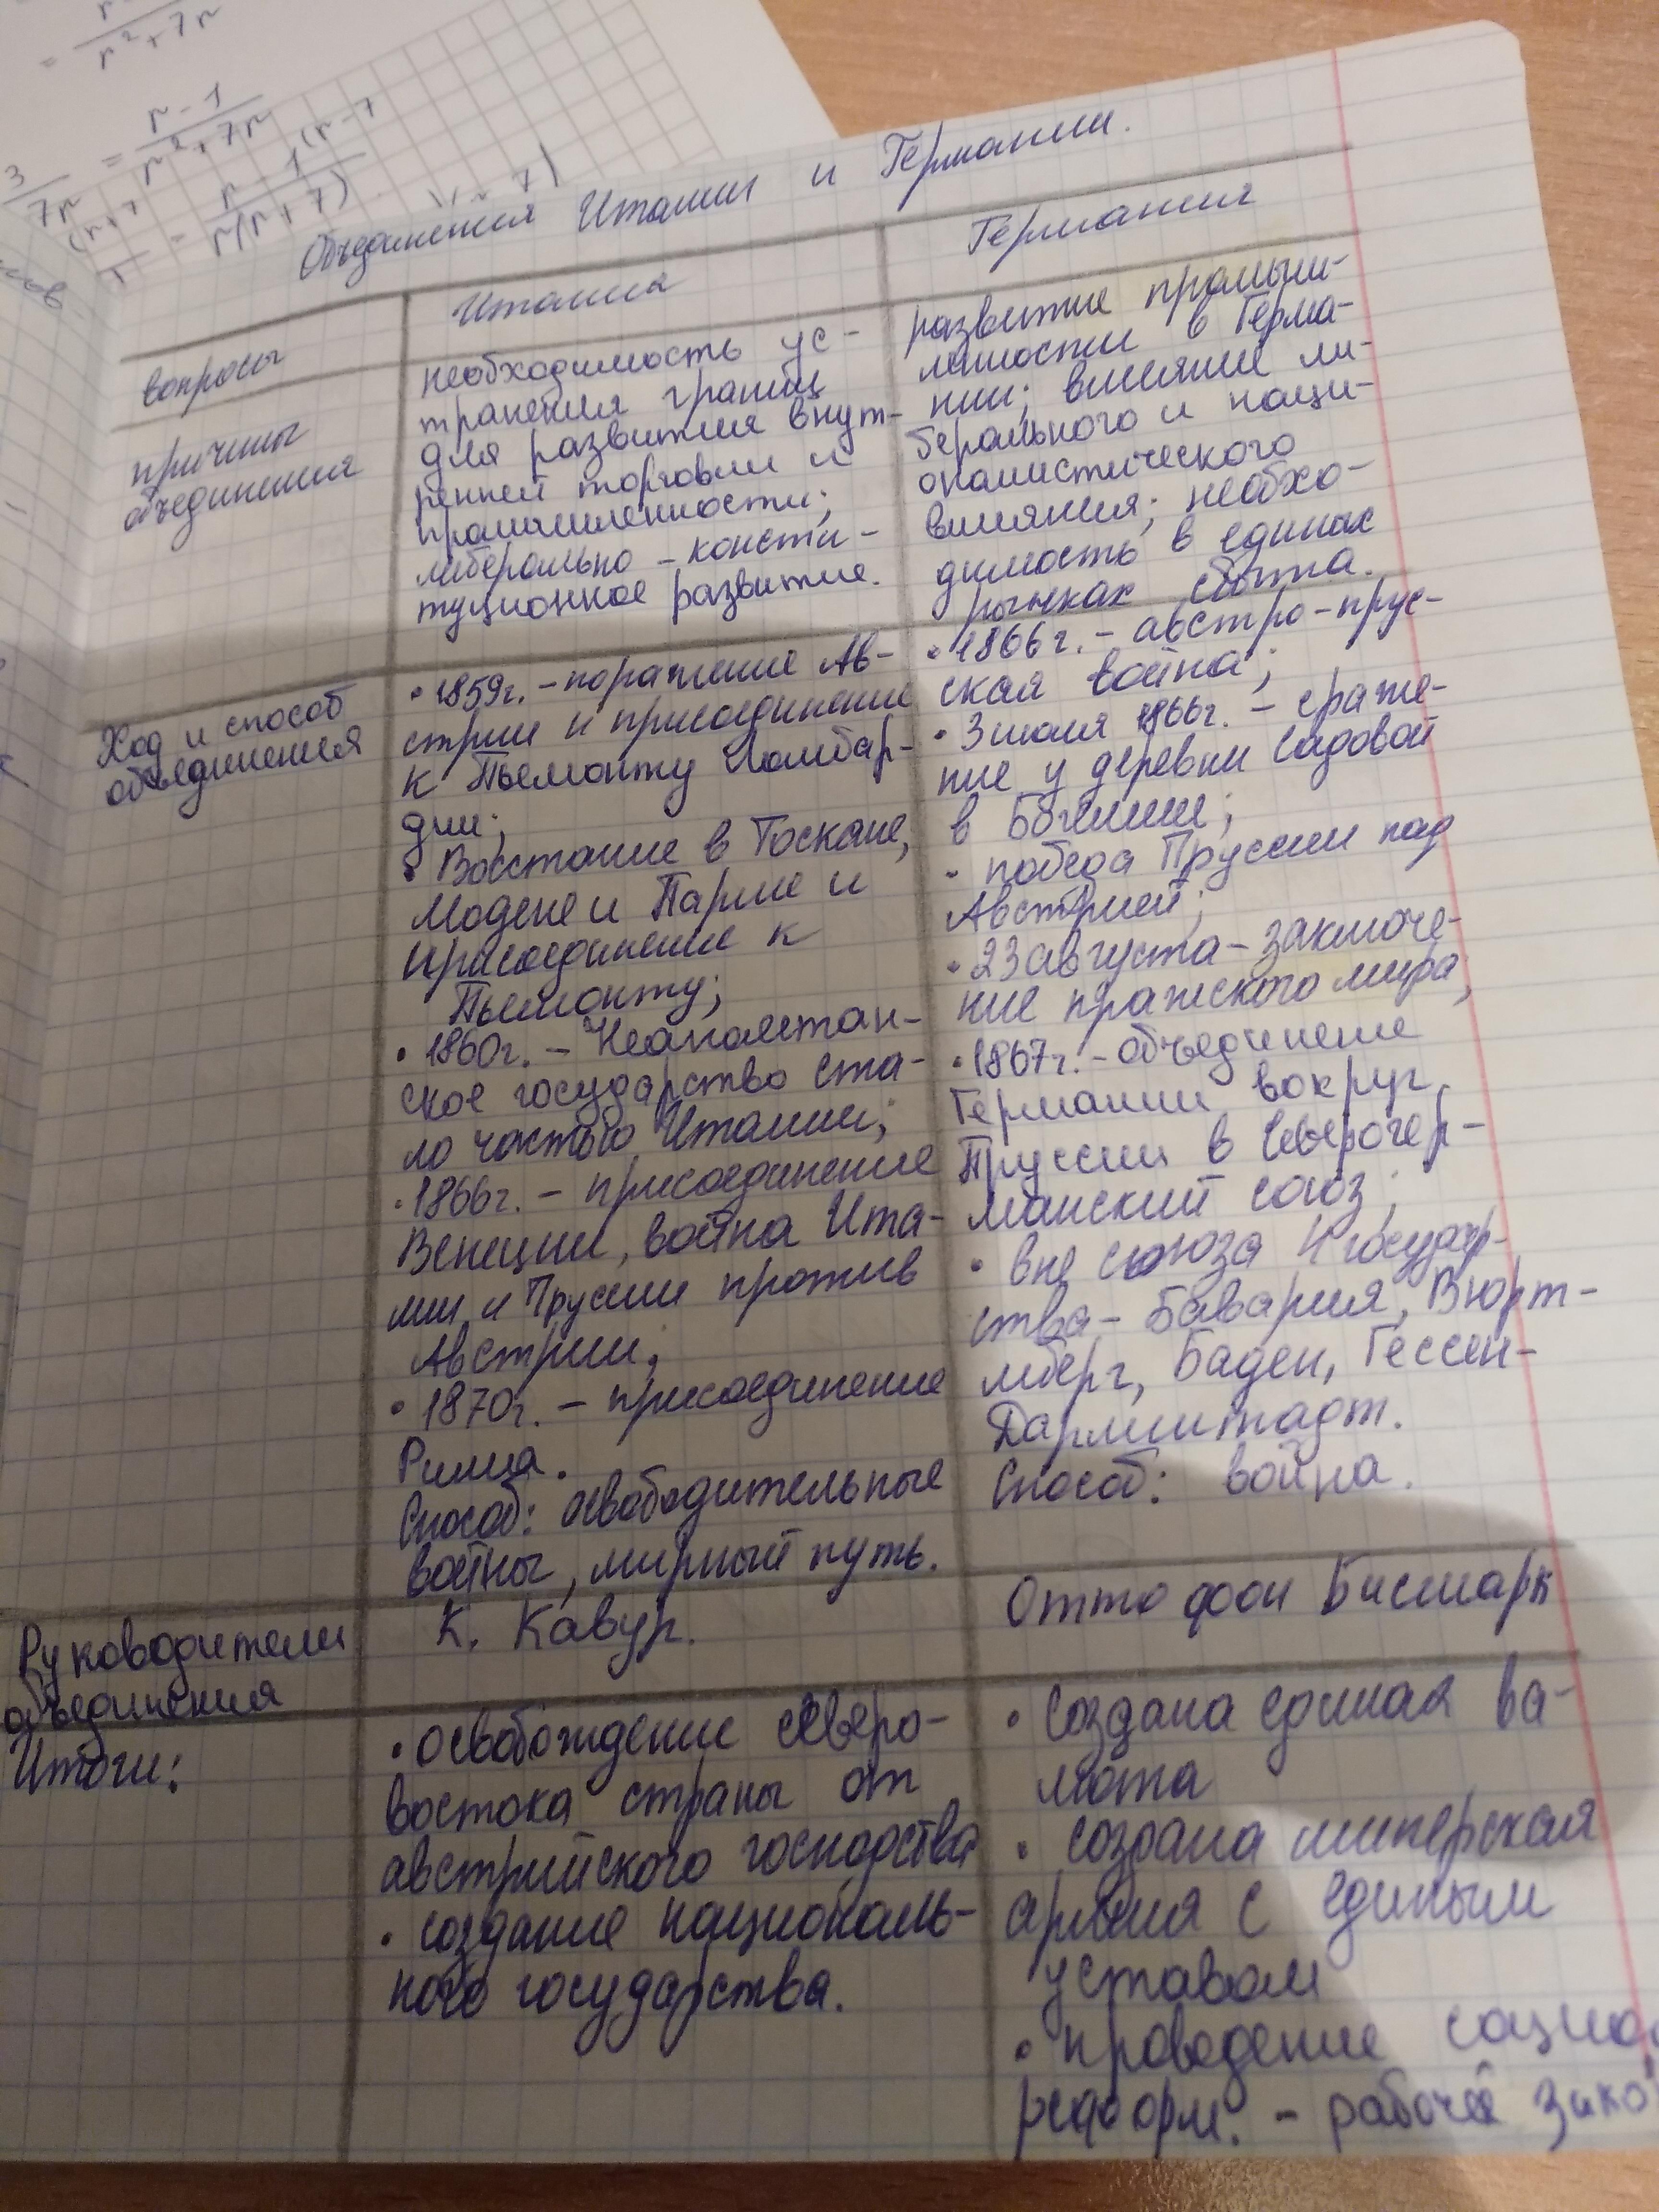 = r² + 7r
3
7r
= r - 1
r² + 7r
= r - 1
r(r + 7)
Объединения Италии и Германии.
вопросы
Италия
Германия
причины
объединения
необходимость ус-
транения границ
для развития внут-
ренней торговли и
промышленности;
либерально - консти-
туционное развитие.
развитие промыш-
лености в Герма-
нии; влияние ли-
берального и наци-
оналистического
влияния; необхо-
димость в единых
рынках сбыта.
Ход и способ
объединения
• 1859г. - поражение Ав-
стрии и присоединение
к Пьемонту Ломбар-
дии;
• Восстание в Тоскане,
Модене и Парме и
присоединение к
Пьемонту;
• 1860г. - Неаполитан-
ское государство ста-
ло частью Италии;
• 1866г. - присоединение
Венеции, война Ита-
лии и Пруссии против
Австрии;
• 1870г. - присоединение
Рима.
Способ: освободительные
войны, мирный путь.
• 1866г. - австро-прус-
ская война;
• 3 июля 1866г. - сраже-
ние у деревни Садовой
в Богемии;
- победа Пруссии над
Австрией;
• 23 августа - заключе-
ние пражского мира;
• 1867г. - объединение
Германии вокруг
Пруссии в Северогер-
манский союз;
• вне союза 4 государ-
ства - Бавария, Вюрт-
мберг, Баден, Гессен-
Дармштадт.
Способ: война.
Руководители
объединения
К. Кавур.
Отто фон Бисмарк
Итоги:
• освобождение северо-
востока страны от
австрийского господства
• создание националь-
ного государства.
• создана единая ва-
люта
• создана имперская
армия с единым
уставом
• проведение социа
реформ. - рабочее зако